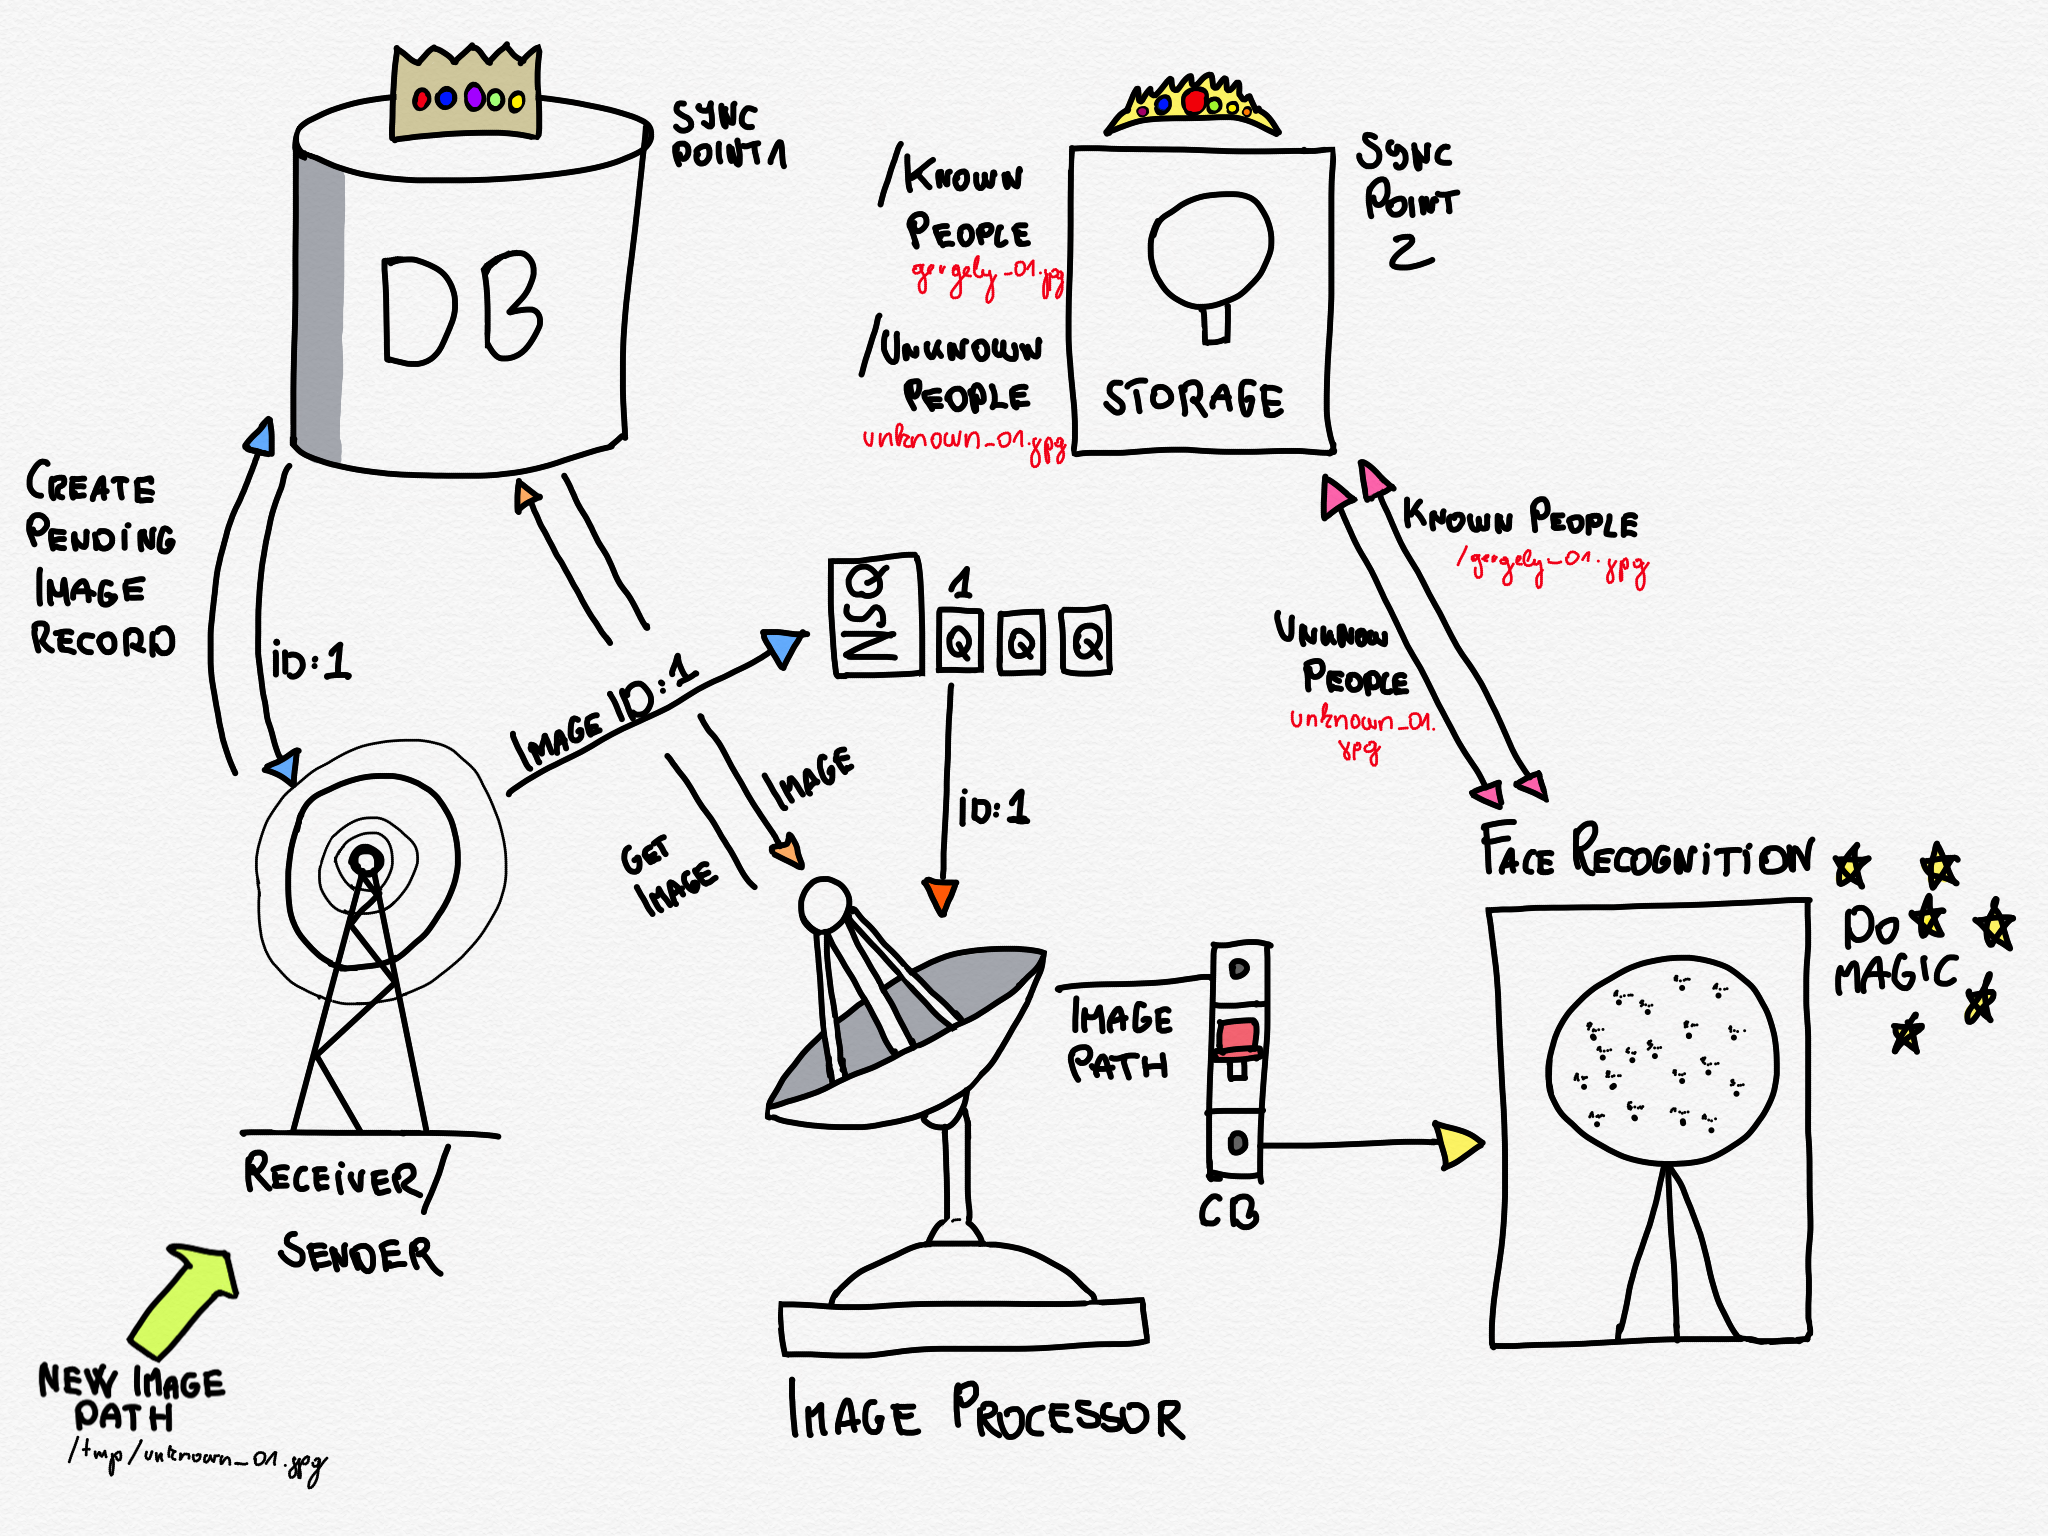 SYNC
POINT 1
DB
/KNOWN
PEOPLE
gergely_01.jpg
/UNKNOWN
PEOPLE
unknown_01.jpg
STORAGE
SYNC
POINT
2
CREATE
PENDING
IMAGE
RECORD
iD:1
IMAGE ID:1
NSQ
1
Q Q Q
KNOWN PEOPLE
/gergely_01.jpg
UNKNOWN
PEOPLE
unknown_01.
jpg
IMAGE
GET
IMAGE
iD:1
FACE RECOGNITION
DO
MAGIC
IMAGE
PATH
CB
RECEIVER/
SENDER
NEW IMAGE
PATH
/tmp/unknown_01.jpg
IMAGE PROCESSOR